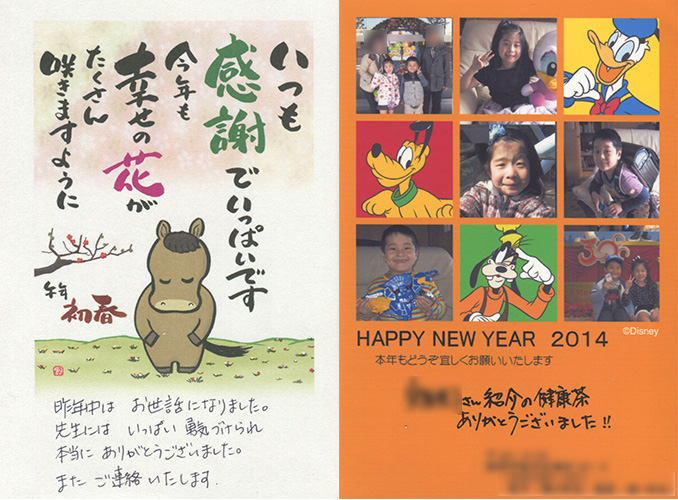 いつも
感謝
でいっぱいです
今年も
幸せの花が
たくさん
咲きますように
午年
初春
昨年中は お世話になりました。
先生には いっぱい 勇気づけられ
本当に ありがとうございました。
また ご連絡 いたします.
©Disney
HAPPY NEW YEAR 2014
本年もどうぞ宜しくお願いいたします
さん紹介の健康茶
ありがとうございました!!